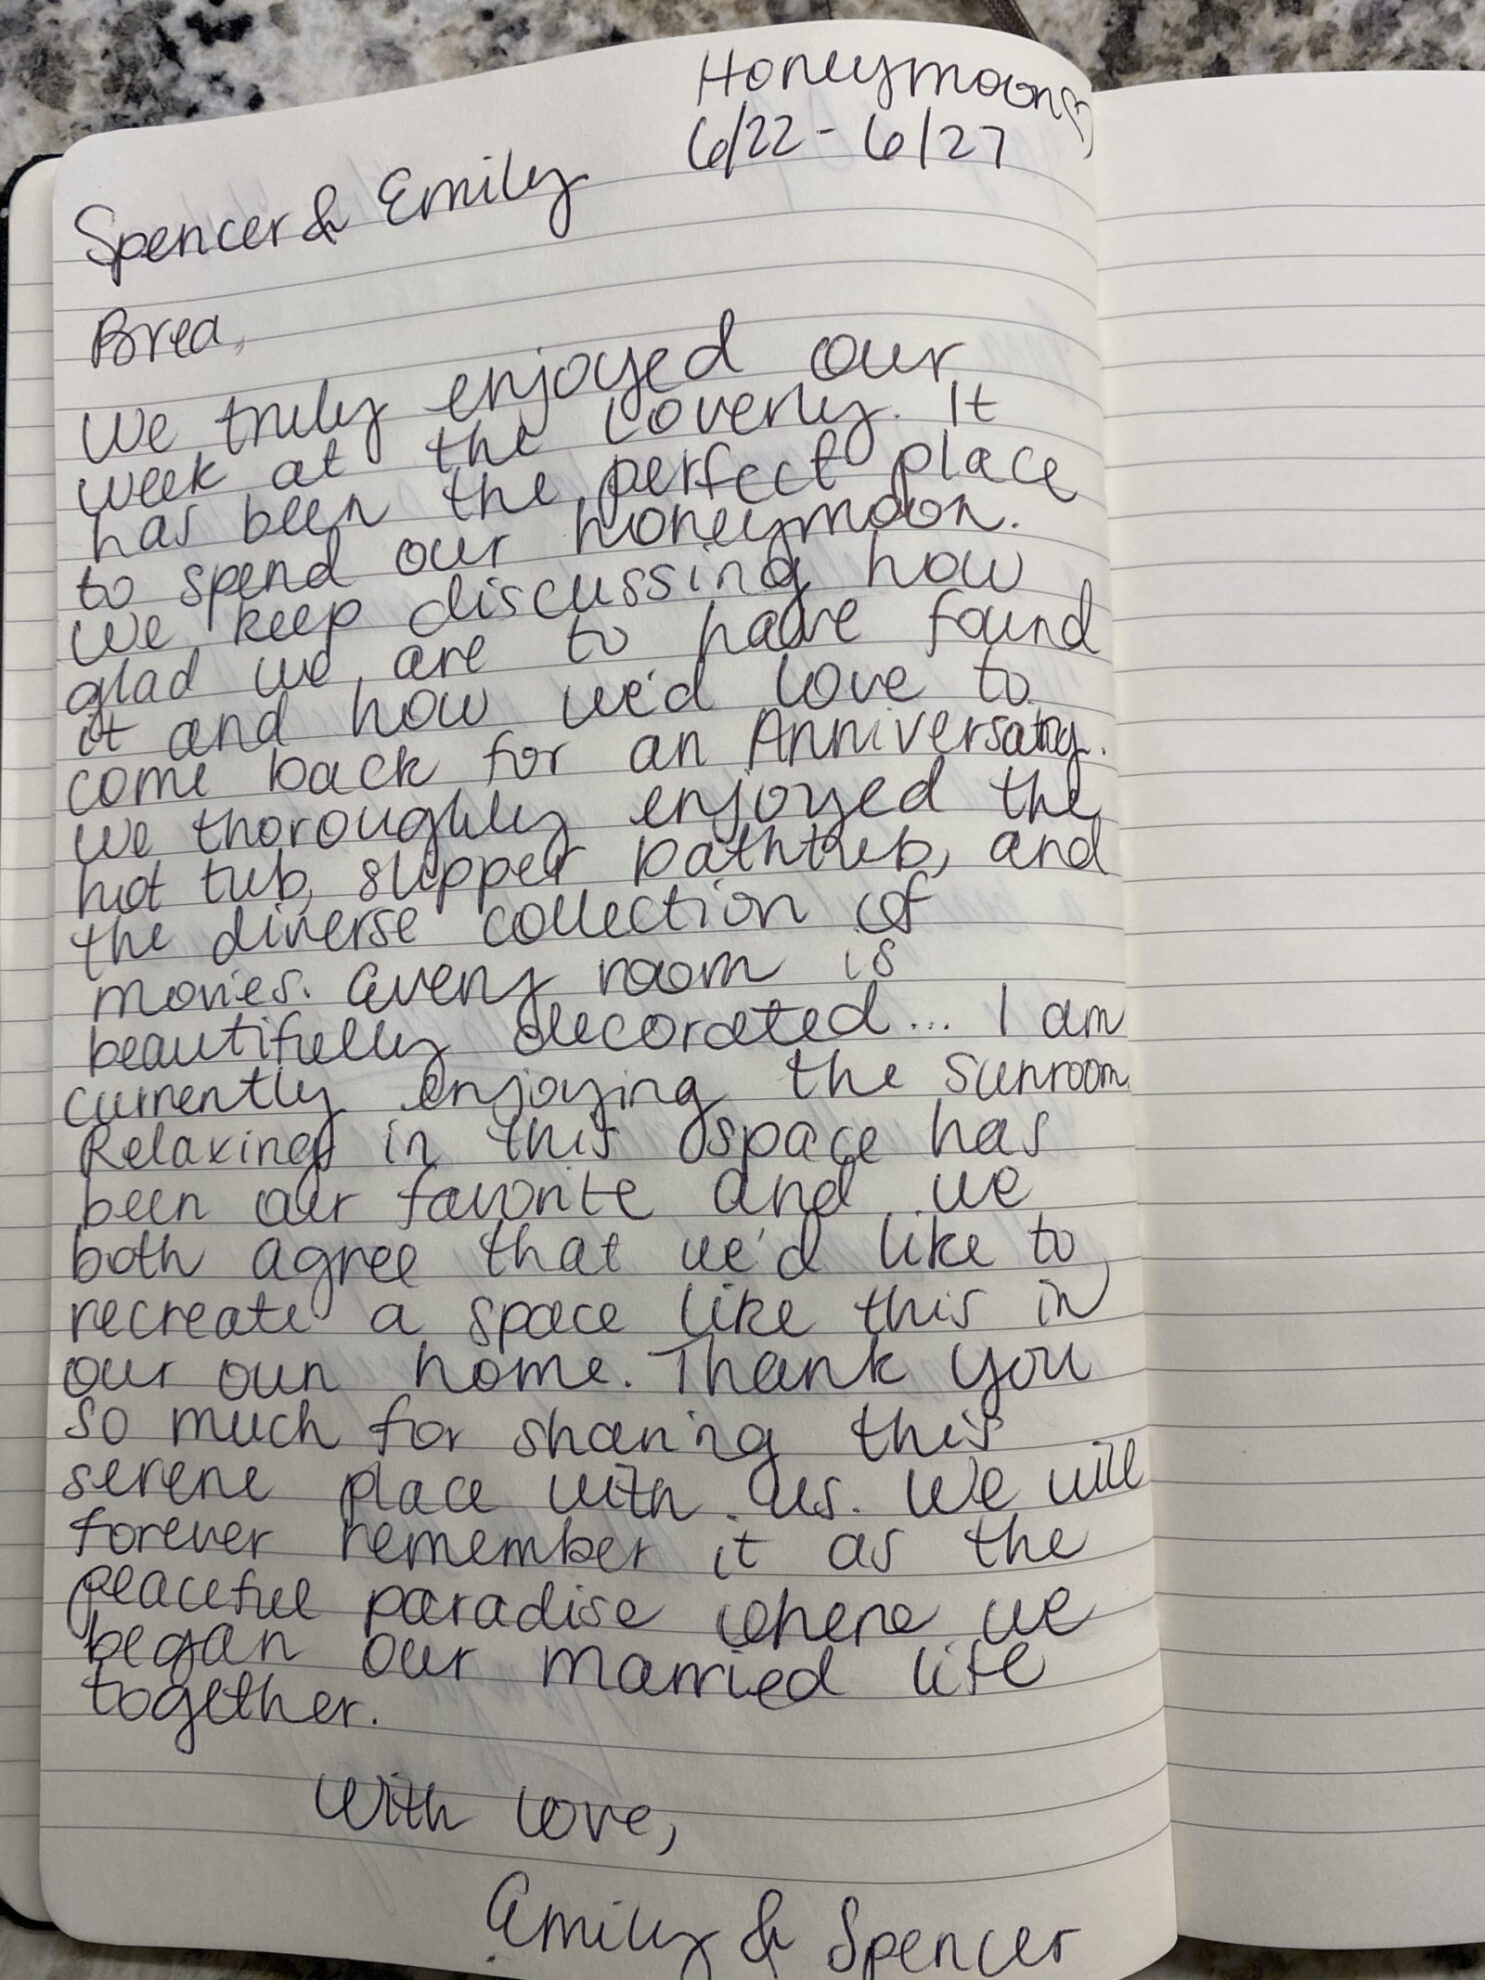 Honeymoon ♡
6/22 - 6/27
Spencer & Emily
Brea,
We truly enjoyed our
week at the Loverly. It
has been the perfect place
to spend our honeymoon.
We keep discussing how
glad we are to have found
it and how we'd love to
come back for an Anniversary.
We thoroughly enjoyed the
hot tub, slipper bathtub, and
the diverse collection of
movies. Every room is
beautifully decorated... I am
currently enjoying the sunroom.
Relaxing in this space has
been our favorite and we
both agree that we'd like to
recreate a space like this in
our own home. Thank you
so much for sharing this
serene place with us. We will
forever remember it as the
peaceful paradise where we
began our married life
together.
With love,
Emily & Spencer